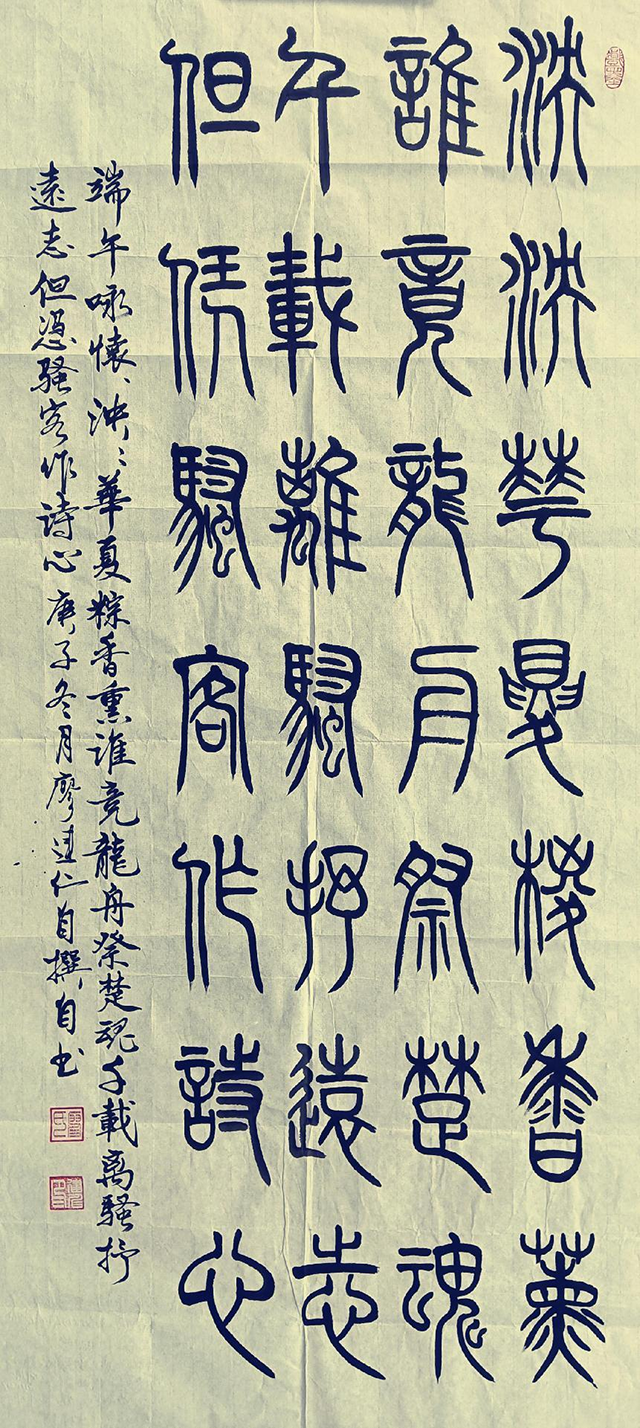 泱泱華夏稷香薰
誰競龍舟祭楚魂
千載離騷抒遠志
但凭騷客作詩心
端午咏懷、泱〻華夏粽香熏誰竞龍舟祭楚魂千載离騷抒
遠志但憑騷客作詩心庚子冬月廖達仁自撰自书